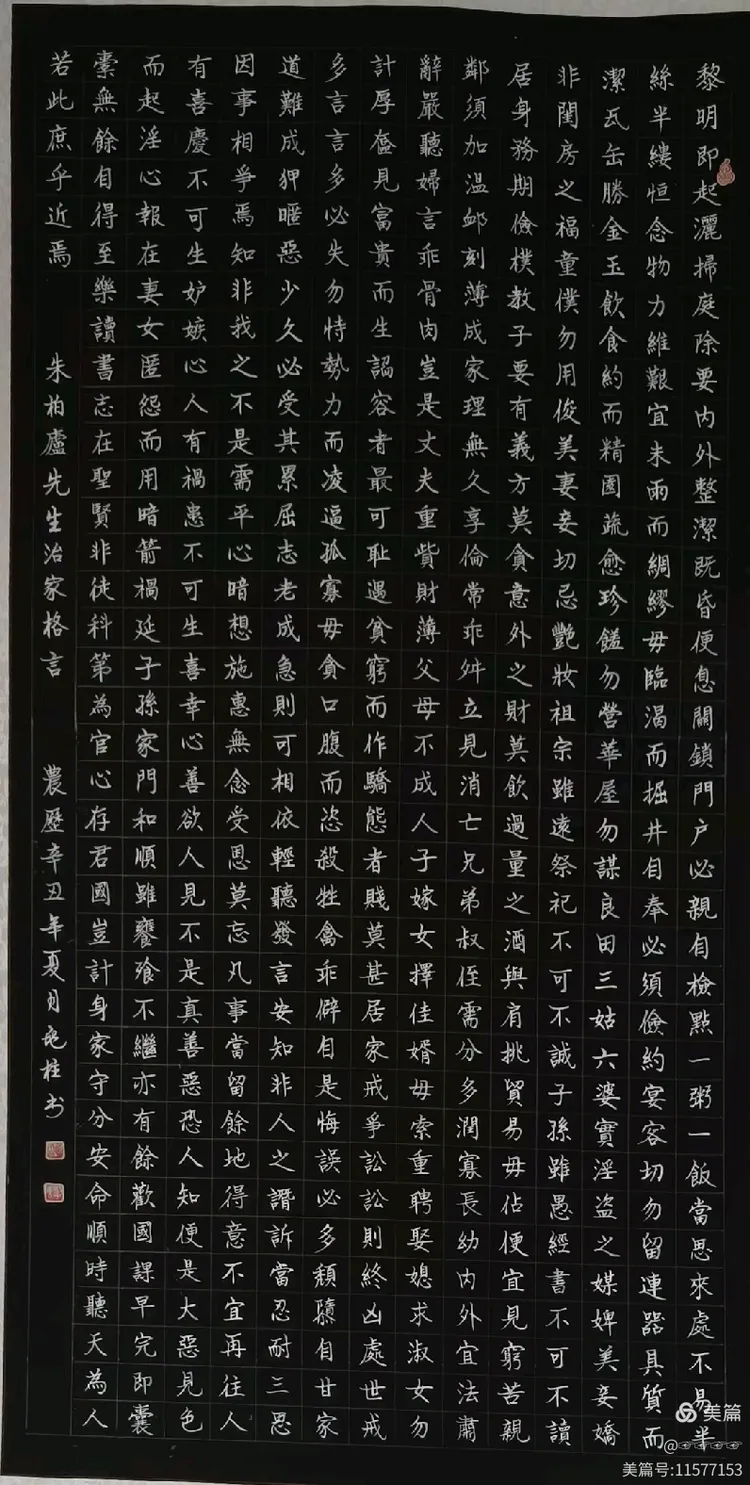 黎明即起灑掃庭除要内外整潔既昏便息關鎖門户必親自檢點一粥一飯當思來處不易半
絲半縷恒念物力維艱宜未雨而綢繆毋臨渴而掘井自奉必須儉約宴客切勿留連器具質而
潔瓦缶勝金玉飲食約而精園蔬愈珍饈勿營華屋勿謀良田三姑六婆實淫盗之媒婢美妾嬌
非閨房之福童僕勿用俊美妻妾切忌艷妝祖宗雖遠祭祀不可不誠子孫雖愚經書不可不讀
居身務期儉樸教子要有義方莫貪意外之財莫飲過量之酒與肩挑貿易毋佔便宜見窮苦親
鄰須加温卹刻薄成家理無久享倫常乖舛立見消亡兄弟叔侄需分多潤寡長幼内外宜法肅
辭嚴聽婦言乖骨肉豈是丈夫重貲財薄父母不成人子嫁女擇佳婿毋索重聘娶媳求淑女勿
計厚奩見富貴而生諂容者最可耻遇貧窮而作驕態者賤莫甚居家戒爭訟訟則終凶處世戒
多言言多必失勿恃勢力而凌逼孤寡毋貪口腹而恣殺牲禽乖僻自是悔誤必多頹隳自甘家
道難成狎暱惡少久必受其累屈志老成急則可相依輕聽發言安知非人之譖訴當忍耐三思
因事相爭焉知非我之不是需平心暗想施惠無念受恩莫忘凡事當留餘地得意不宜再往人
有喜慶不可生妒嫉心人有禍患不可生喜幸心善欲人見不是真善惡恐人知便是大惡見色
而起淫心報在妻女匿怨而用暗箭禍延子孫家門和順雖饔飧不繼亦有餘歡國課早完即囊
橐無餘自得至樂讀書志在聖賢非徒科第為官心存君國豈計身家守分安命順時聽天為人
若此庶乎近焉 朱柏廬先生治家格言 農歷辛丑年夏月桂书
美篇
@
美篇号:11577153